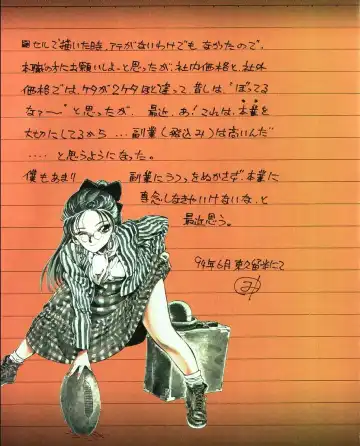 セルで描いた時、アテがないわけでもなかったので、
本職の方にお願いしよーと思ったが、社内価格と、社外
価格では、ケタが2ケタほど違って、昔しは、"ぼってる
なァ〜"と思ったが、最近、あ!これは、本業を
大切にしてるから…副業(税込み)は高いんだ
‥‥と思うようになった。
僕もあまり 副業にうつつをぬかさず本業に
専念しなきゃいけないな、と
最近思う。
94年6月 東久留米にて
み